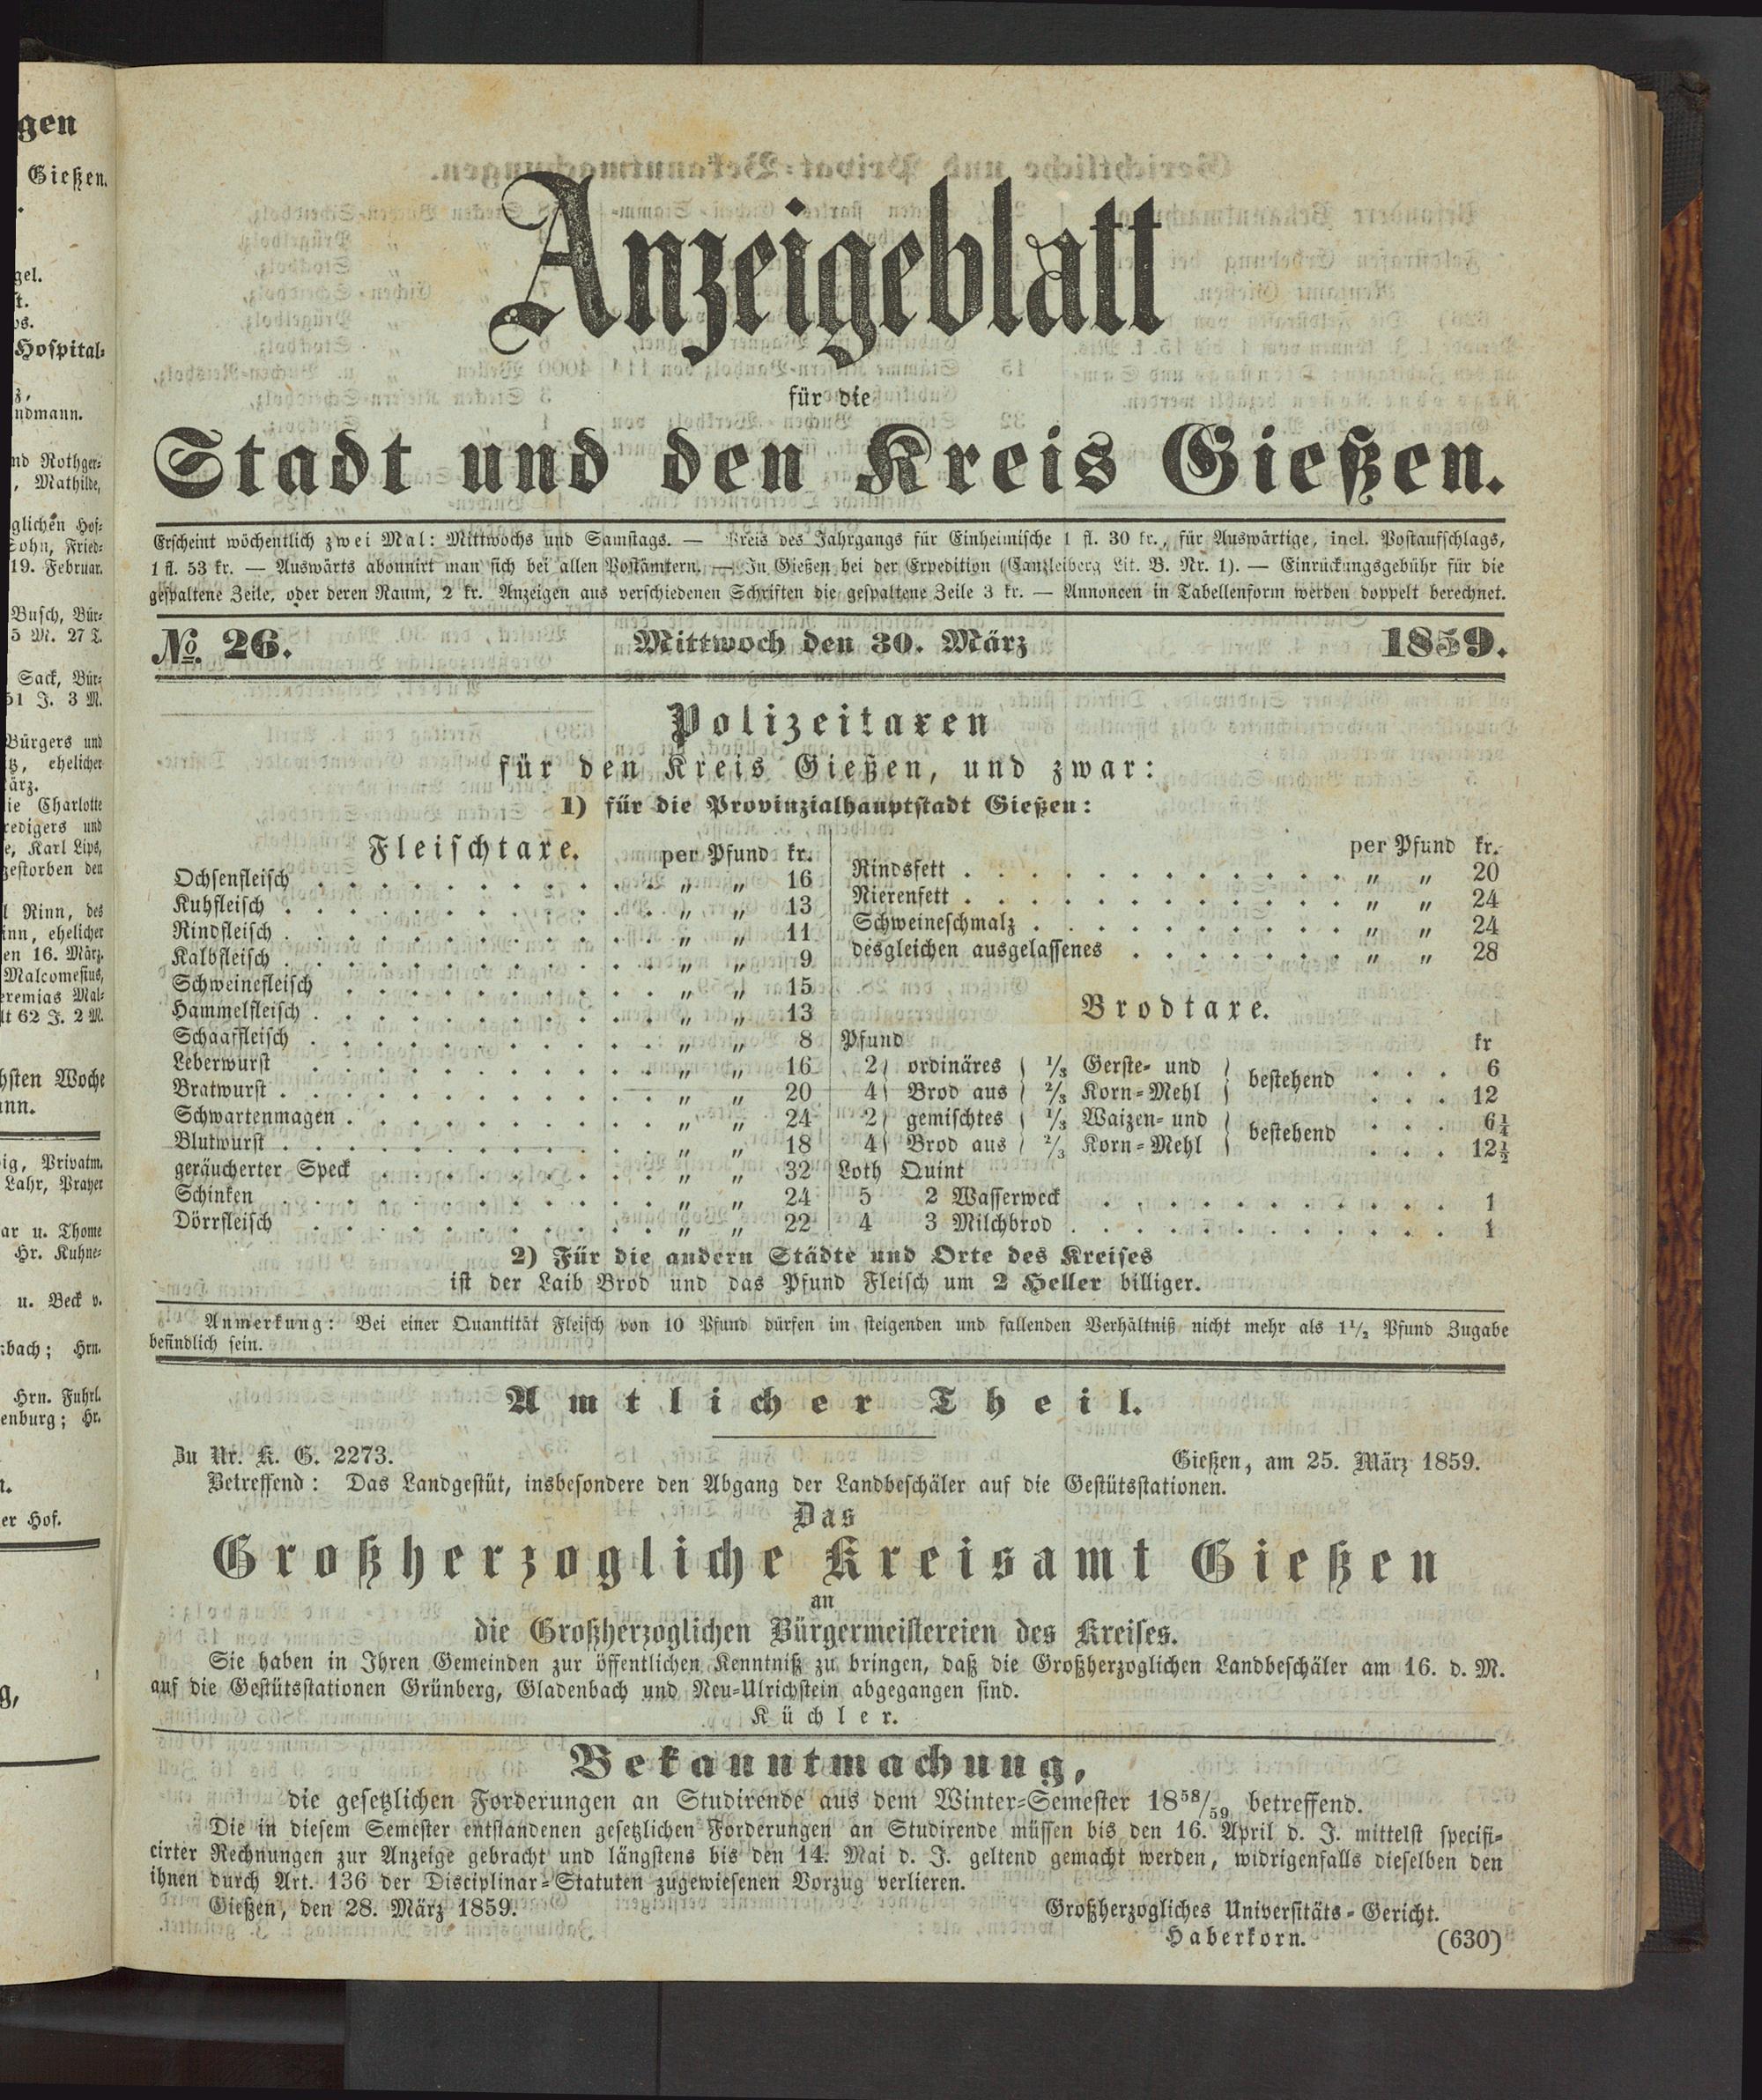 gen
Gießen.
gel.
st.
Hospital-
ndmann.
nd Rothger-
, Mathilde,
glichen Hof-
Sohn, Fried-
19. Februar.
Busch, Bür-
5 M. 27 T.
Sack, Bür-
51 J. 3 M.
Bürgers und
tz, ehelicher
ärz.
ie Charlotte
redigers und
e, Karl Lips,
gestorben den
l Rinn, des
inn, ehelicher
en 16. März.
Malcomesius,
eremias Mal-
lt 62 J. 2 M.
hsten Woche
ann.
ig, Privatm.
Lahr, Prayer
ar u. Thome
Hr. Kuhne-
u. Beck v.
bach; Hrn.
Hrn. Fuhrl.
enburg; Hr.
er Hof.
Anzeigeblatt
für die
Stadt und den Kreis Gießen.
Erscheint wöchentlich zwei Mal: Mittwochs und Samstags. — Preis des Jahrgangs für Einheimische 1 fl. 30 kr., für Auswärtige, incl. Postaufschlags,
1 fl. 53 kr. — Auswärts abonnirt man sich bei allen Postämtern. — In Gießen bei der Expedition (Canzleiberg Lit. B. Nr. 1). — Einrückungsgebühr für die
gespaltene Zeile, oder deren Raum, 2 kr. Anzeigen aus verschiedenen Schriften die gespaltene Zeile 3 kr. — Annoncen in Tabellenform werden doppelt berechnet.
No. 26. Mittwoch den 30. März 1859.
Polizeitaxen
für den Kreis Gießen, und zwar:
1) für die Provinzialhauptstadt Gießen:
Fleischtaxe. per Pfund kr.
Ochsenfleisch . . . . . . . . . . . . . „ „ 16
Kuhfleisch . . . . . . . . . . . . . . „ „ 13
Rindfleisch . . . . . . . . . . . . . . „ „ 11
Kalbfleisch . . . . . . . . . . . . . . „ „ 9
Schweinefleisch . . . . . . . . . . . . „ „ 15
Hammelfleisch . . . . . . . . . . . . . „ „ 13
Schaaffleisch . . . . . . . . . . . . . „ „ 8
Leberwurst . . . . . . . . . . . . . „ „ 16
Bratwurst . . . . . . . . . . . . . . „ „ 20
Schwartenmagen . . . . . . . . . . . . „ „ 24
Blutwurst . . . . . . . . . . . . . . „ „ 18
geräucherter Speck . . . . . . . . . . . „ „ 32
Schinken . . . . . . . . . . . . . . „ „ 24
Dörrfleisch . . . . . . . . . . . . . „ „ 22
per Pfund kr.
Rindsfett . . . . . . . . . . . . . „ „ 20
Nierenfett . . . . . . . . . . . . . „ „ 24
Schweineschmalz . . . . . . . . . . . „ „ 24
desgleichen ausgelassenes . . . . . . . „ „ 28
Brodtaxe.
Pfund kr
2} ordinäres { 1/3 Gerste- und } bestehend . . . 6
4} Brod aus { 2/3 Korn-Mehl } . . . 12
2} gemischtes { 1/3 Waizen- und } bestehend . . . 6¼
4} Brod aus { 2/3 Korn-Mehl } . . . 12½
Loth Quint
5 2 Wasserweck . . . . . . . . . . . 1
4 3 Milchbrod . . . . . . . . . . . . 1
2) Für die andern Städte und Orte des Kreises
ist der Laib Brod und das Pfund Fleisch um 2 Heller billiger.
Anmerkung: Bei einer Quantität Fleisch von 10 Pfund dürfen im steigenden und fallenden Verhältniß nicht mehr als 1½ Pfund Zugabe
befindlich sein.
Amtlicher Theil.
Zu Nr. K. G. 2273. Gießen, am 25. März 1859.
Betreffend: Das Landgestüt, insbesondere den Abgang der Landbeschäler auf die Gestütsstationen.
Das
Großherzogliche Kreisamt Gießen
an
die Großherzoglichen Bürgermeistereien des Kreises.
Sie haben in Ihren Gemeinden zur öffentlichen Kenntniß zu bringen, daß die Großherzoglichen Landbeschäler am 16. d. M.
auf die Gestütsstationen Grünberg, Gladenbach und Neu-Ulrichstein abgegangen sind.
Küchler.
Bekanntmachung,
die gesetzlichen Forderungen an Studirende aus dem Winter-Semester 1858/59 betreffend.
Die in diesem Semester entstandenen gesetzlichen Forderungen an Studirende müssen bis den 16. April d. J. mittelst specifi-
cirter Rechnungen zur Anzeige gebracht und längstens bis den 14. Mai d. J. geltend gemacht werden, widrigenfalls dieselben den
ihnen durch Art. 136 der Disciplinar-Statuten zugewiesenen Vorzug verlieren.
Gießen, den 28. März 1859. Großherzogliches Universitäts-Gericht.
Haberkorn. (630)